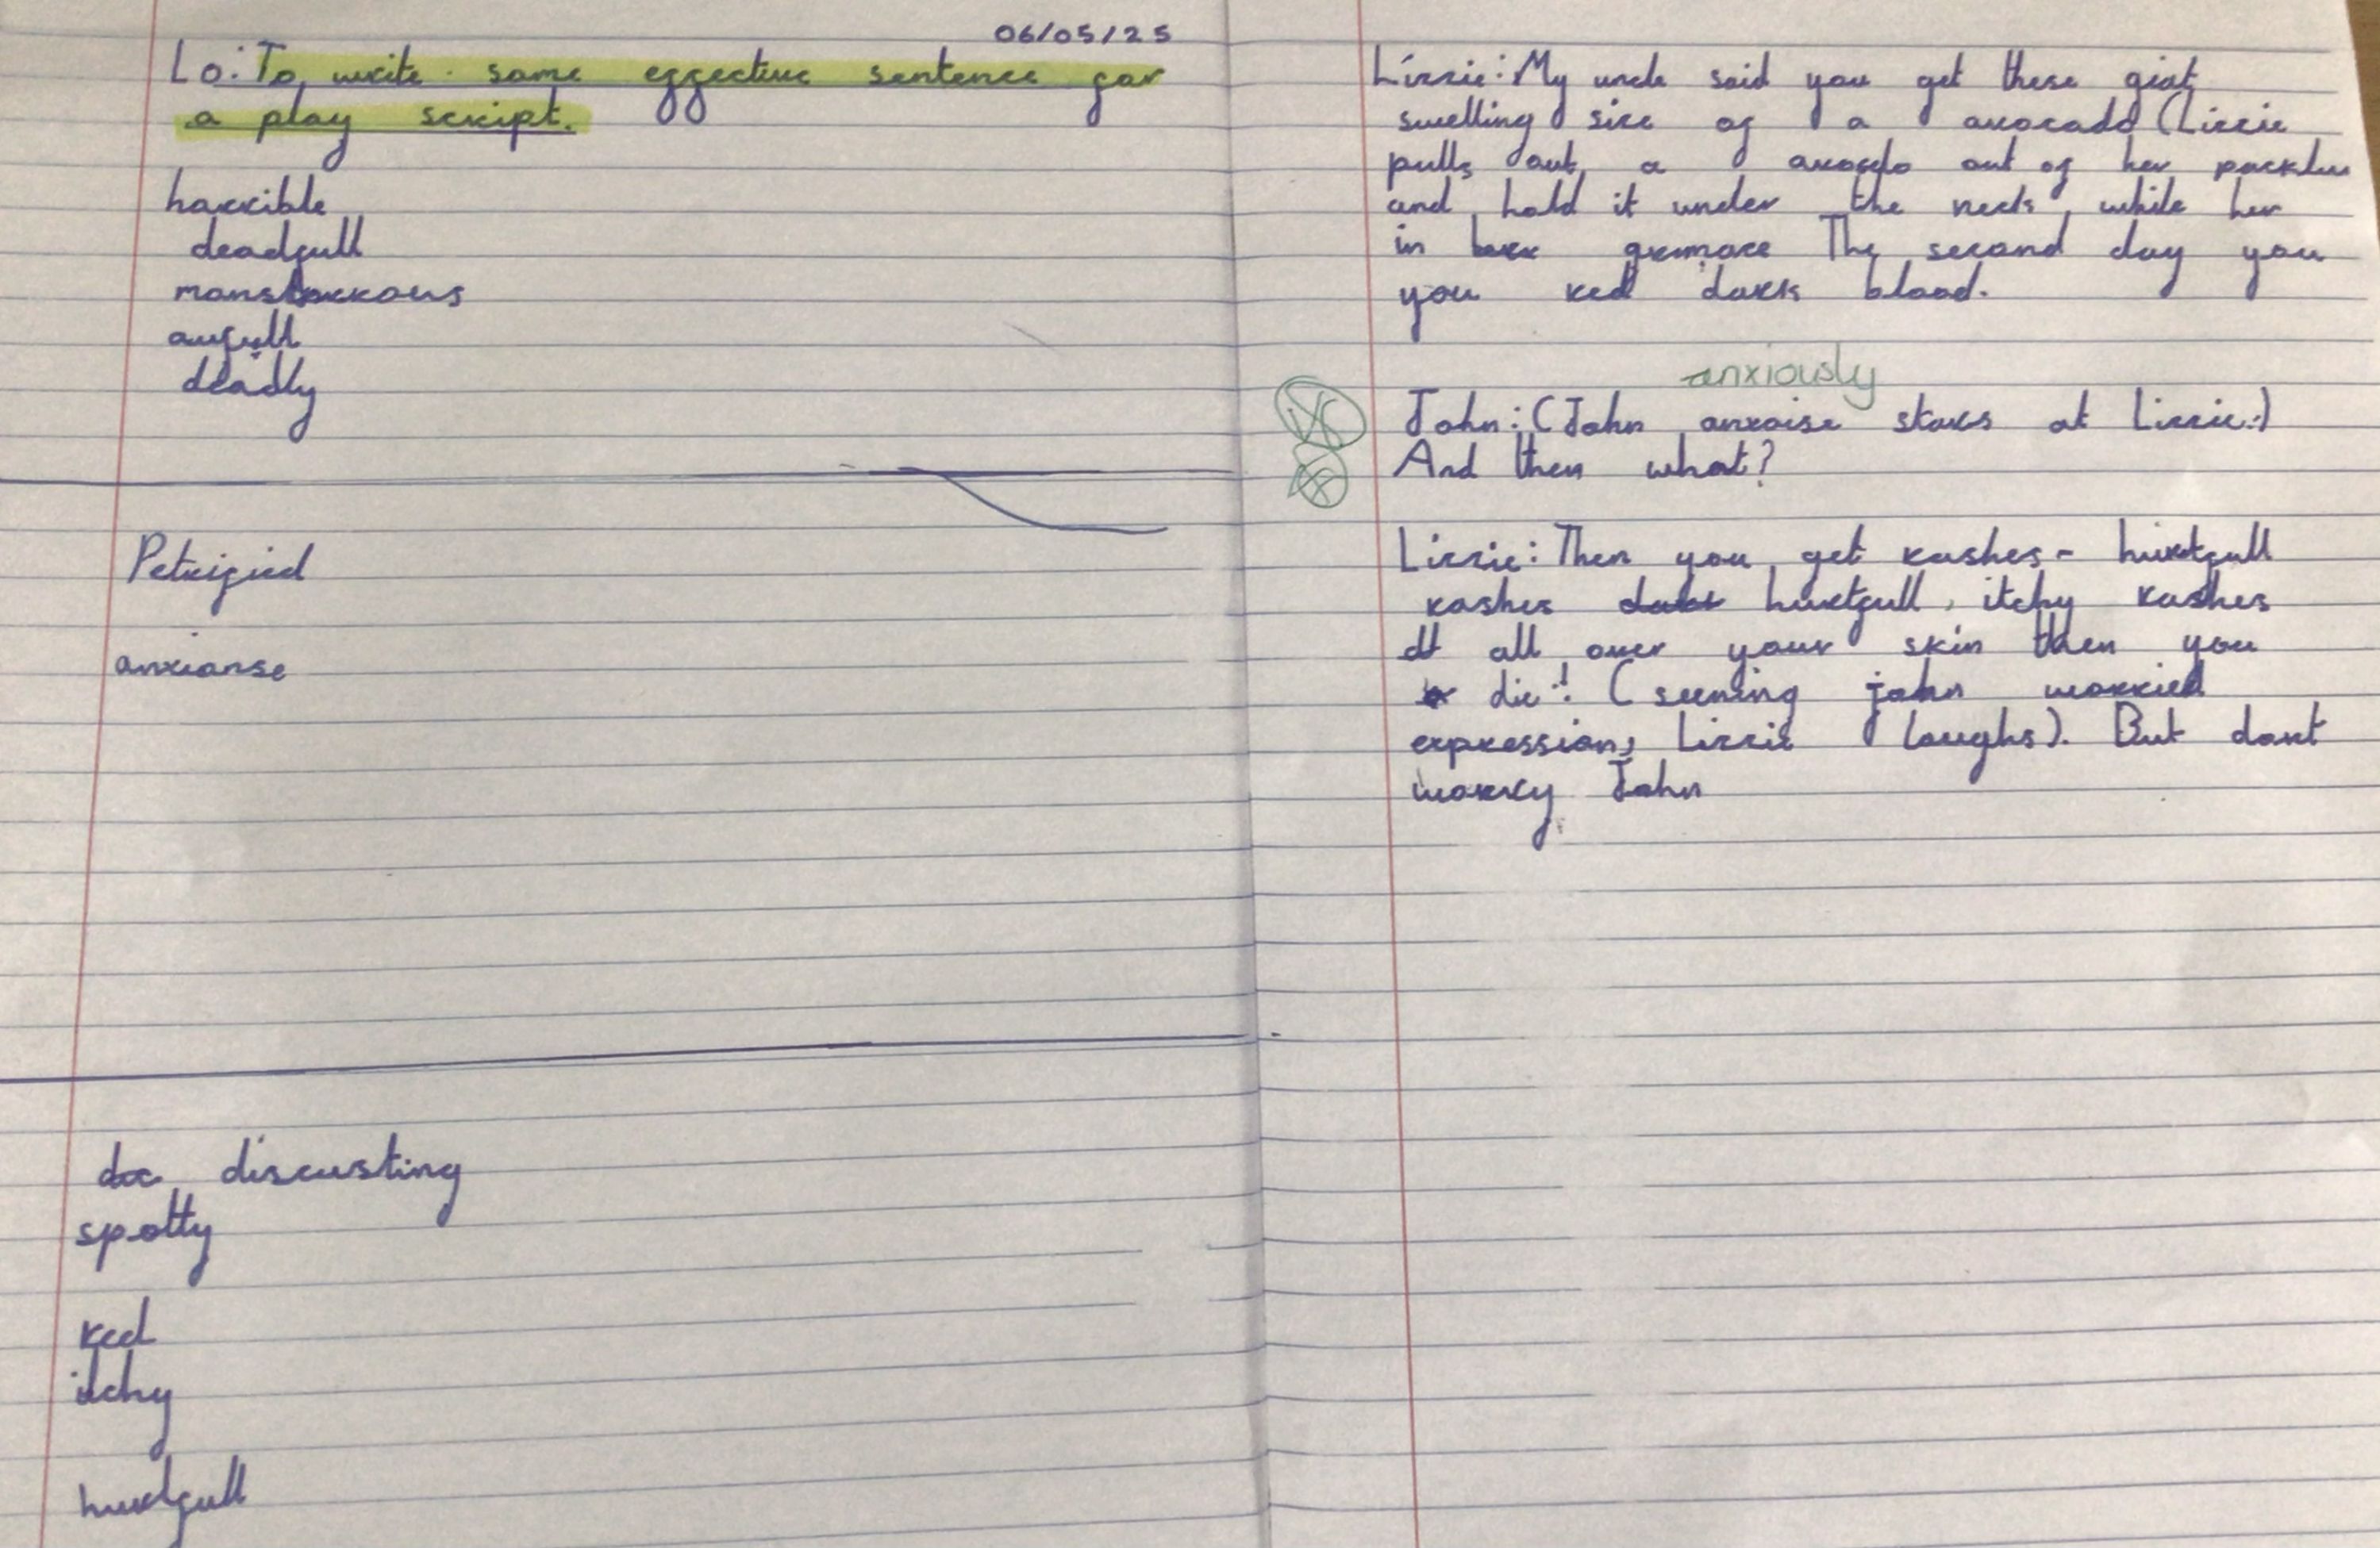 06/05/25
Lo: To write some effective sentence for
a play script.
horrible
deadfull
monstorrous
aufull
deadly
Petrified
anxianse
discusting
spotty
red
itchy
hurtfull
Lizzie: My uncle said you get these giat
swelling size of a avocado (Lizzie
pulls out a avocdo out of her
and hold it under the neck while her
in grimace The second day you
you red dark blood.
anxiously
John: (John anxoise stars at Lizzie.)
And then what?
Lizzie: Then you get rashes - hurtfull
rashes hurtfull, itchy rashes
all over your skin then you
die! (seening john worried
expression, Lizzie laughs). But dont
worry John